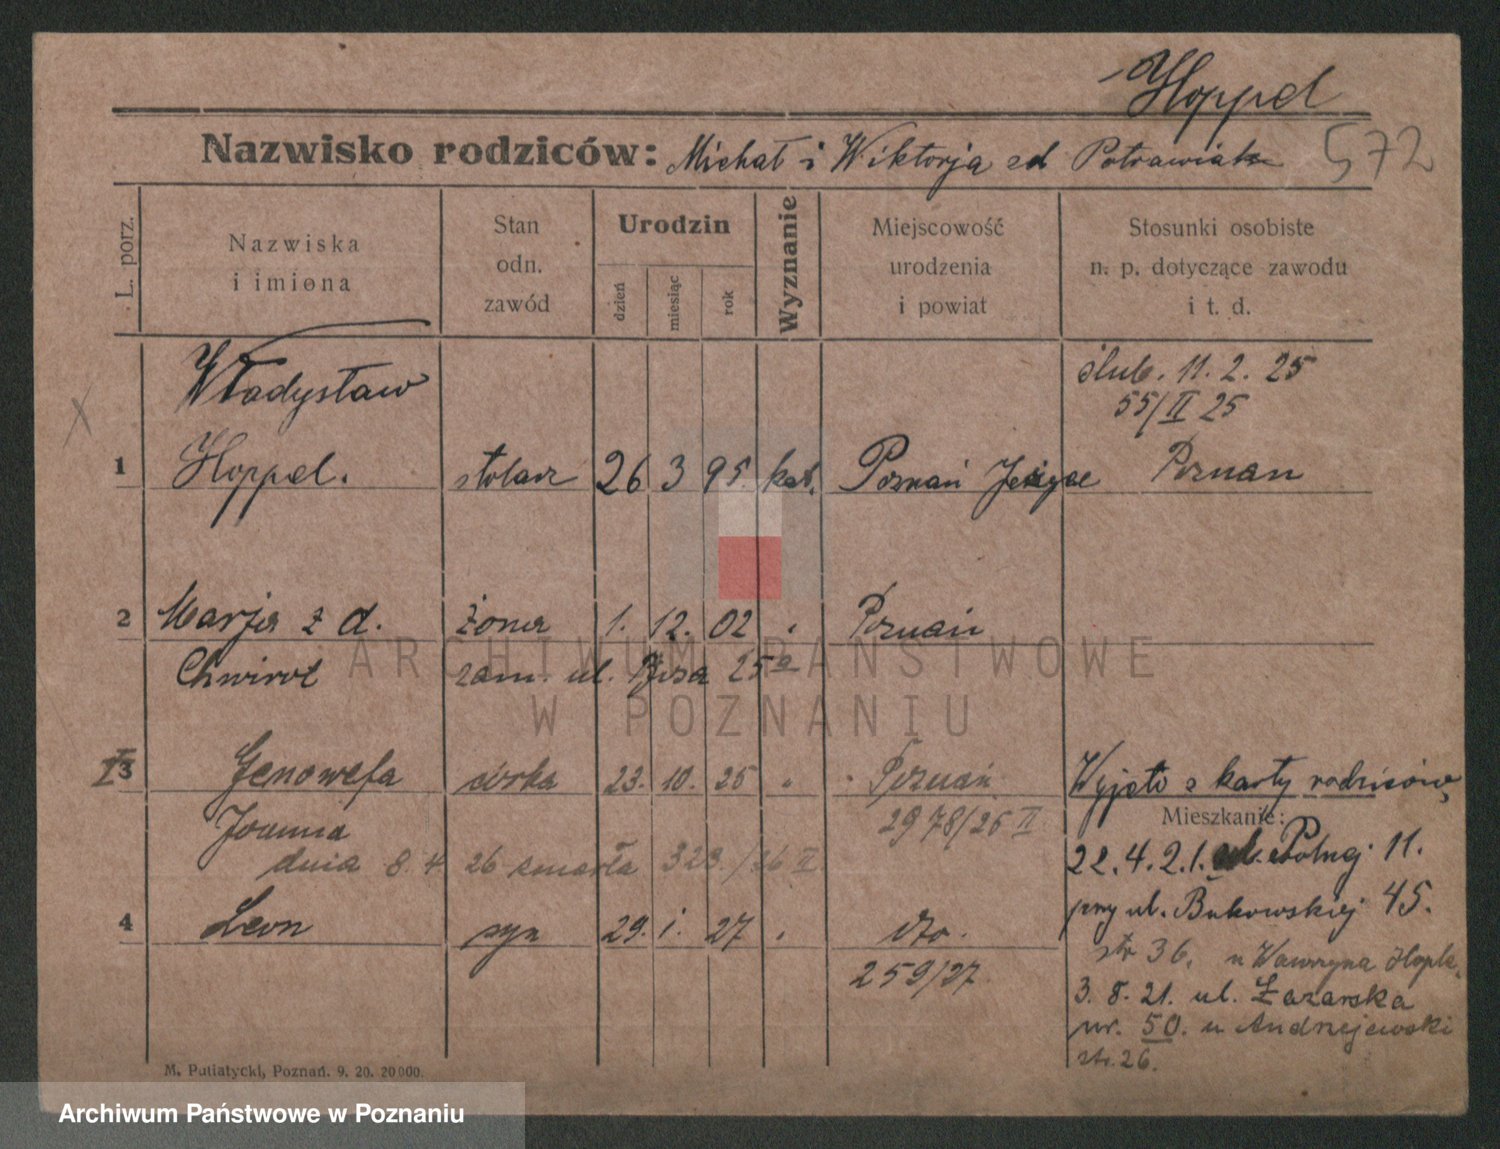 Hoppel
Nazwisko rodziców: Michał i Wiktorja zd Potrawiak 572
L. porz.
Nazwiska i imiona
Stan odn. zawód
Urodzin
dzień
miesiąc
rok
Wyznanie
Miejscowość urodzenia i powiat
Stosunki osobiste n. p. dotyczące zawodu i t. d.
Władysław
ślub. 11. 2. 25
55/II 25
1 Hoppel. stolarz 26 3 95. kat. Poznań Jeżyce Poznan
2 Marja z d. żona 1. 12. 02 " Poznań
Chwirot zam. ul. 25a
I 3 Genowefa córka 23. 10. 25 " Poznań Wyjęto z karty rodziców
Joanna 2978/25 II
Mieszkanie:
dnia 8. 4 26 zmarła 323/26 II
22. 4. 21. ul. Polnej 11.
4 Leon syn 29. 1. 27 " dto.
przy ul. Bukowskiej 45.
259/27
str 36. u Wawrzyna Hopla
3. 8. 21. ul. Łazarska
nr. 50. u Andrzejewski
str. 26.
M. Putiatycki, Poznań. 9. 20. 20000.
ARCHIWUM PAŃSTWOWE
W POZNANIU
Archiwum Państwowe w Poznaniu